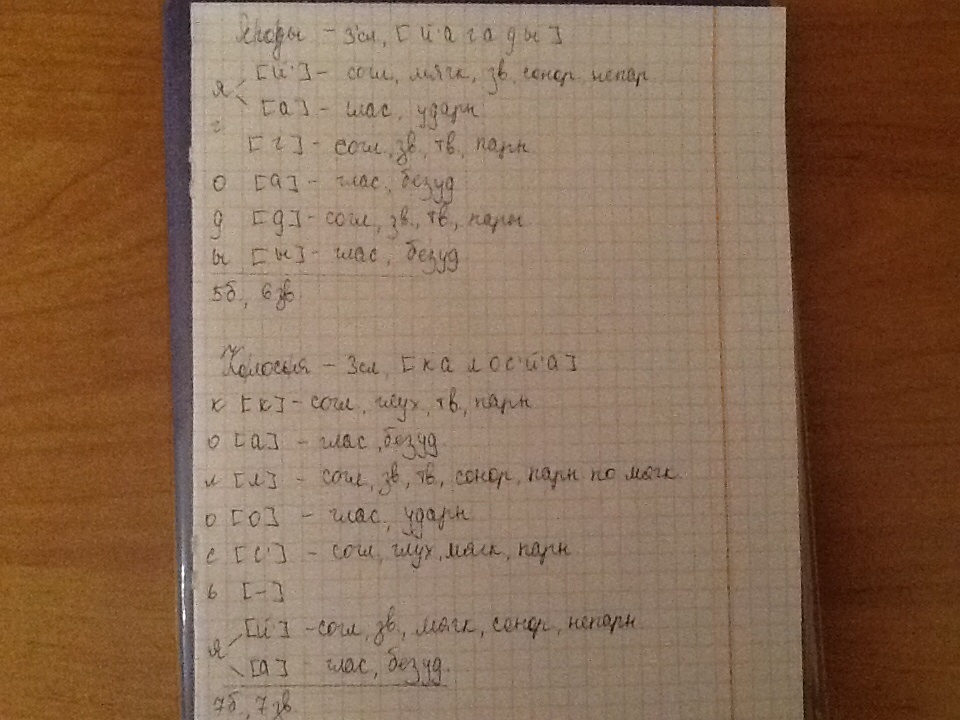 Ягоды - 3сл, [й'агады]
я [й'] - согл, мягк, зв, сонор, непар
[а] - глас, ударн
г [г] - согл, зв., тв., парн
о [а] - глас, безуд
д [д] - согл, зв., тв., парн
ы [ы] - глас, безуд
5б., 6зв
Колосья - 3сл, [калос'й'а]
к [к] - согл, глух, тв, парн
о [а] - глас, безуд
л [л] - согл, зв, тв, сонор, парн по мягк
о [о] - глас, ударн
с [с'] - согл, глух, мягк, парн
ь [-]
я [й'] - согл, зв., мягк, сонор, непарн
[а] - глас, безуд.
7б., 7зв